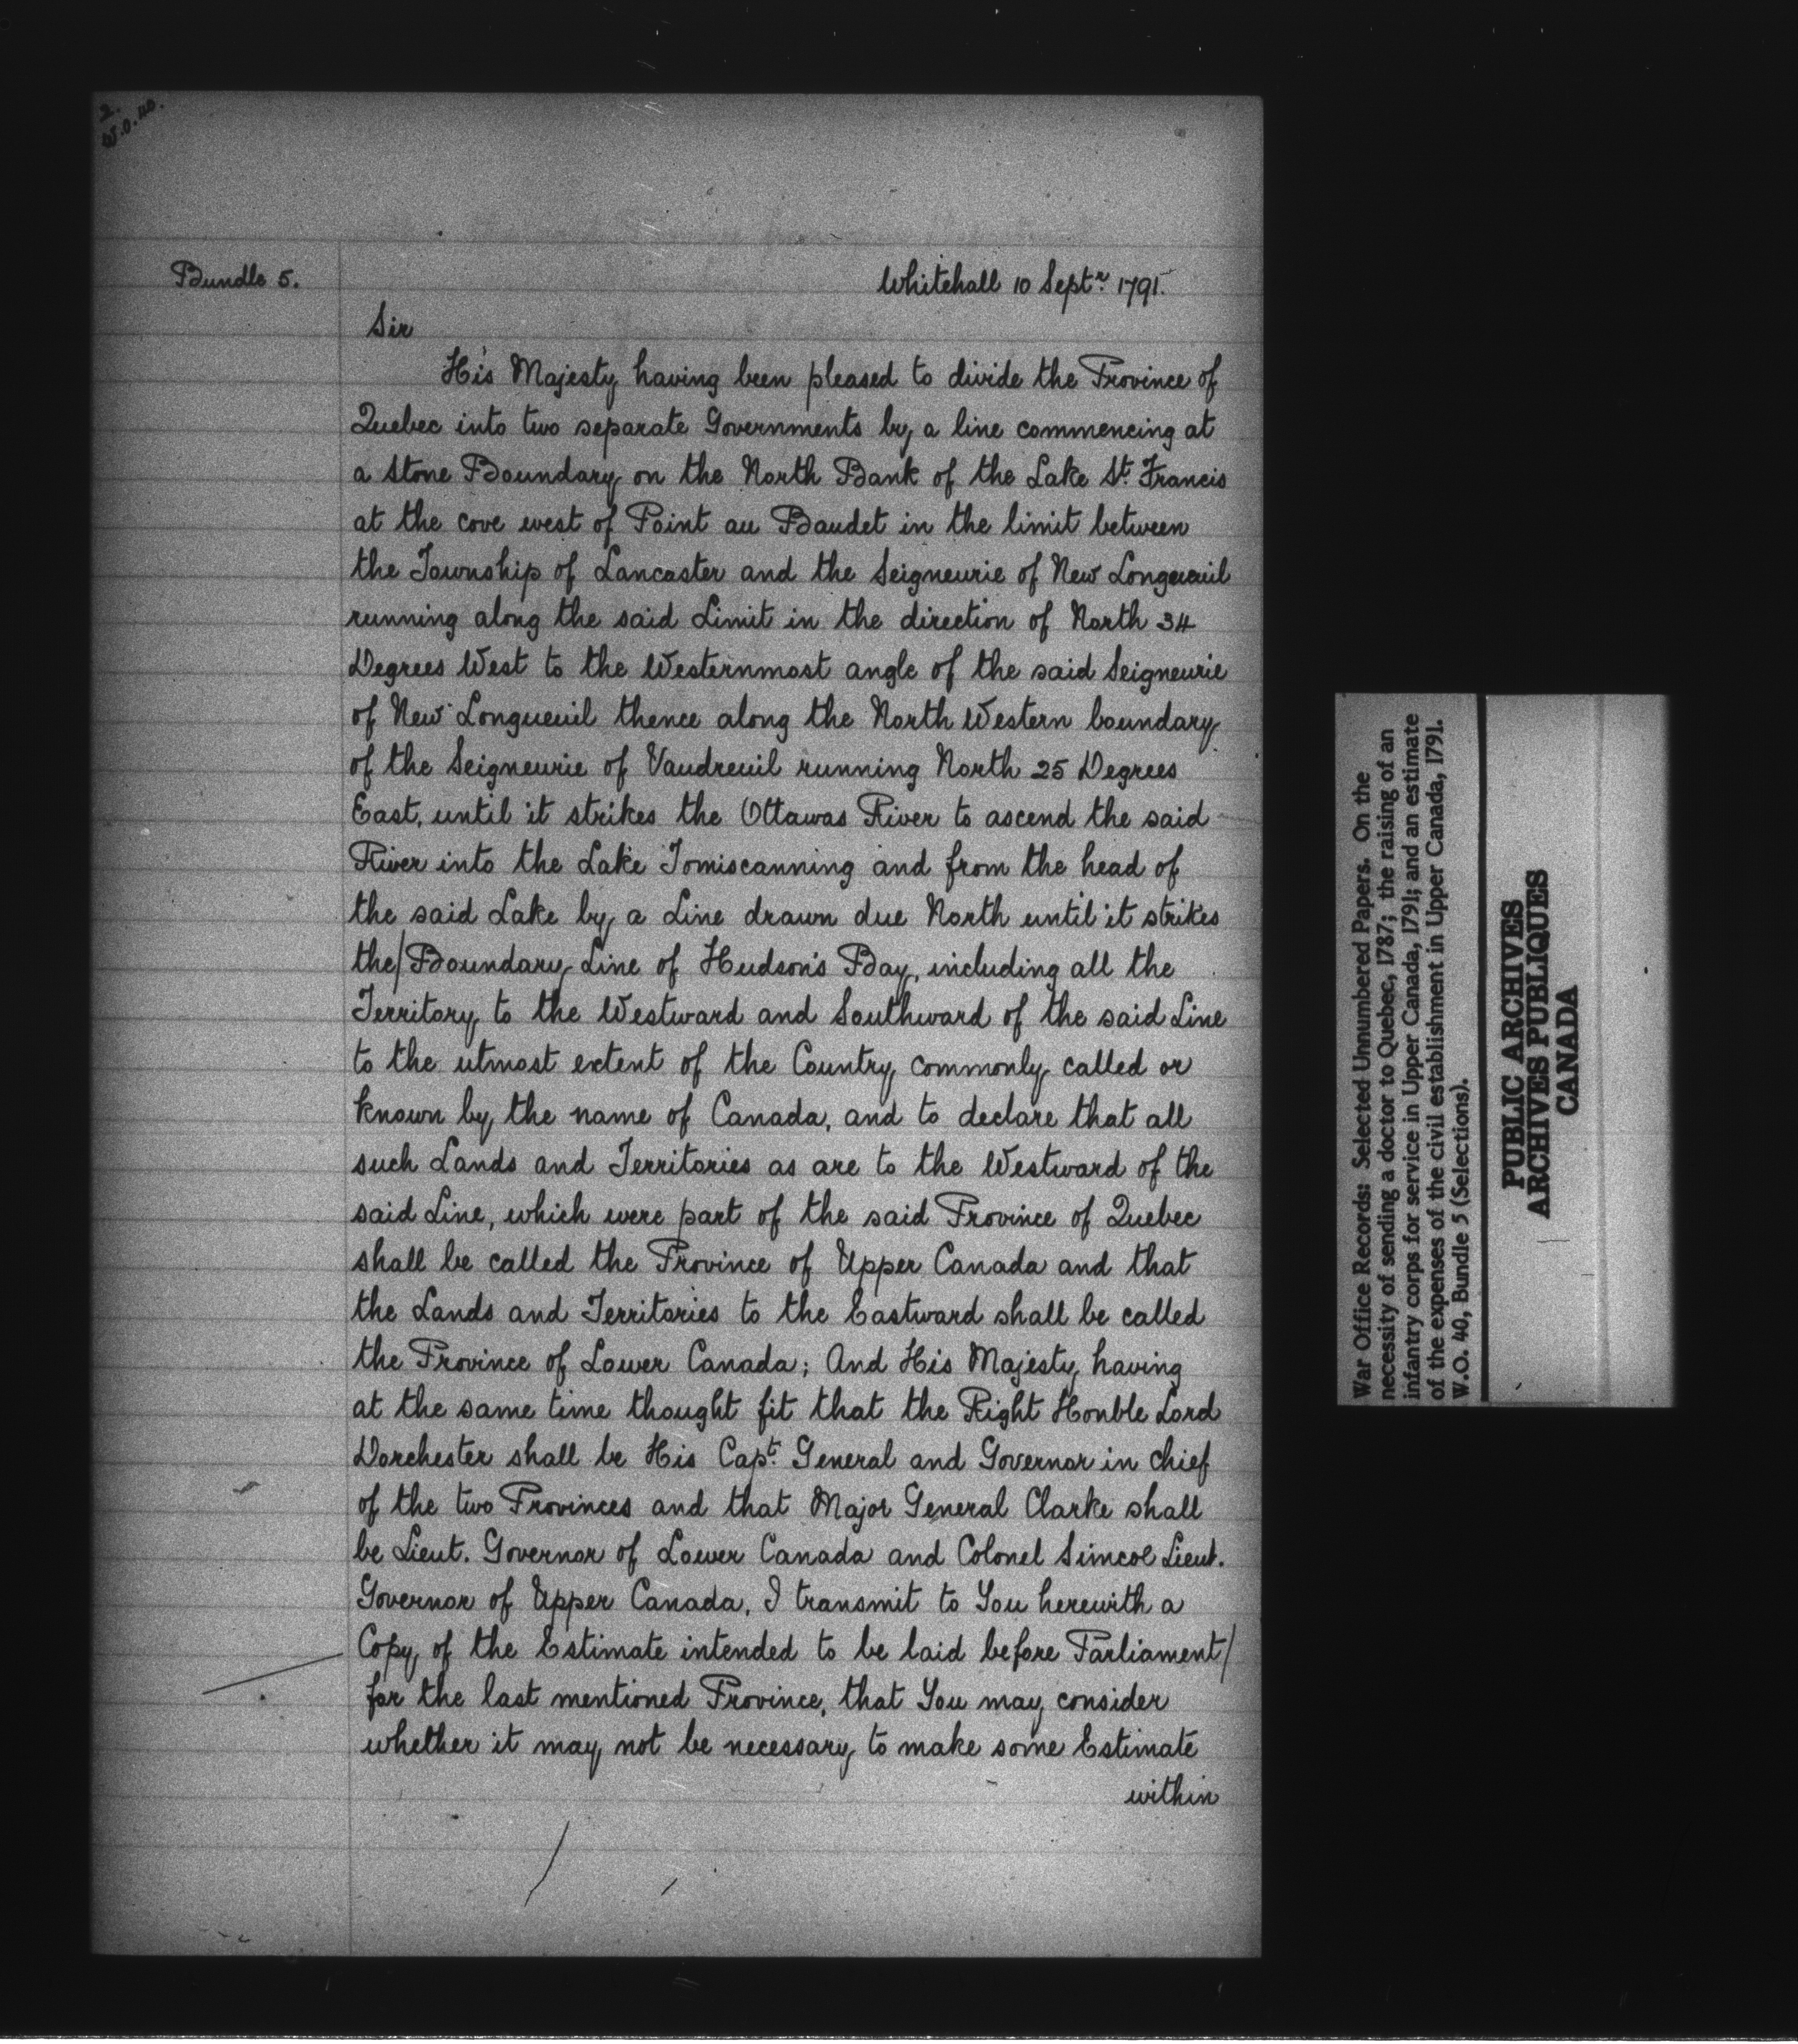 2.
W.O. 40.
Bundle 5.
Whitehall 10 Septr. 1791.
Sir
His Majesty having been pleased to divide the Province of
Quebec into two separate Governments by a line commencing at
a Stone Boundary on the North Bank of the Lake St. Francis
at the cove west of Point au Baudet in the limit between
the Township of Lancaster and the Seigneurie of New Longueuil
running along the said Limit in the direction of North 34
Degrees West to the Westernmost angle of the said Seigneurie
of New Longueuil thence along the North Western boundary
of the Seigneurie of Vaudreuil running North 25 Degrees
East, until it strikes the Ottawas River to ascend the said
River into the Lake Tomiscanning and from the head of
the said Lake by a Line drawn due North until it strikes
the/Boundary Line of Hudson's Bay, including all the
Territory to the Westward and Southward of the said Line
to the utmost extent of the Country commonly called or
known by the name of Canada, and to declare that all
such Lands and Territories as are to the Westward of the
said Line, which were part of the said Province of Quebec
shall be called the Province of Upper Canada and that
the Lands and Territories to the Eastward shall be called
the Province of Lower Canada; And His Majesty having
at the same time thought fit that the Right Honble Lord
Dorchester shall be His Capt. General and Governor in chief
of the two Provinces and that Major General Clarke shall
be Lieut. Governor of Lower Canada and Colonel Simcoe Lieut.
Governor of Upper Canada, I transmit to You herewith a
Copy of the Estimate intended to be laid before Parliament/
for the last mentioned Province, that You may consider
whether it may not be necessary to make some Estimate
within
War Office Records: Selected Unnumbered Papers. On the
necessity of sending a doctor to Quebec, 1787; the raising of an
infantry corps for service in Upper Canada, 1791; and an estimate
of the expenses of the civil establishment in Upper Canada, 1791.
W.O. 40, Bundle 5 (Selections).
PUBLIC ARCHIVES
ARCHIVES PUBLIQUES
CANADA